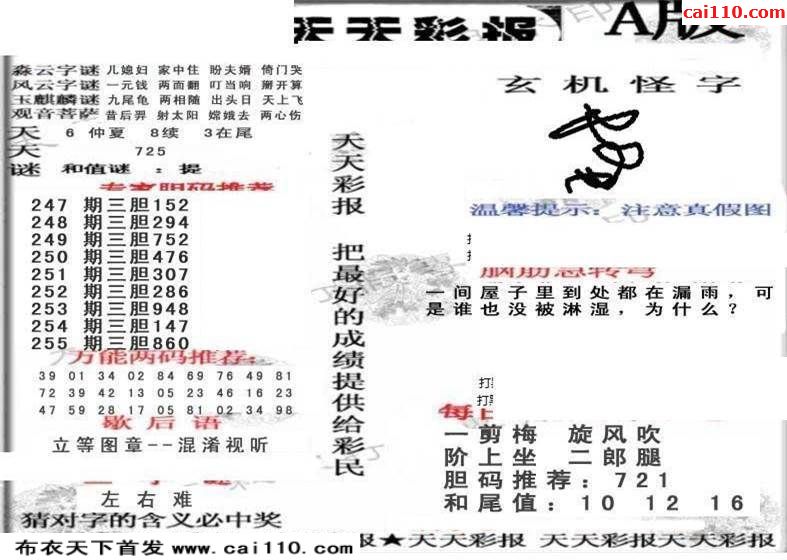 cai110.com
天天彩报 A版
森云字谜 儿媳妇 家中住 盼夫婿 倚门哭
风云字谜 一元钱 两面翻 叮当响 掰开算
玉麒麟谜 九尾龟 两相随 出头日 天上飞
观音菩萨 昔后羿 射太阳 嫦娥去 两心伤
天 6 仲夏 8续 3在尾
天 725
谜 和值谜 :提
专家胆码推荐
247 期三胆152
248 期三胆294
249 期三胆752
250 期三胆476
251 期三胆307
252 期三胆286
253 期三胆948
254 期三胆147
255 期三胆860
万能两码推荐:
39 01 34 02 84 69 76 49 81
72 39 42 13 05 23 46 16 23
47 59 28 17 05 81 02 34 98
歇后语
立等图章--混淆视听
左右难
猜对字的含义必中奖
天天彩报 把最好的成绩提供给彩民
玄机怪字
温馨提示:注意真假图
脑筋急转弯
一间屋子里到处都在漏雨,可
是谁也没被淋湿,为什么?
一剪梅 旋风吹
阶上坐 二郎腿
胆码推荐:721
和尾值:10 12 16
布衣天下首发 www.cai110.com 报★天天彩报 天天彩报 天天彩报